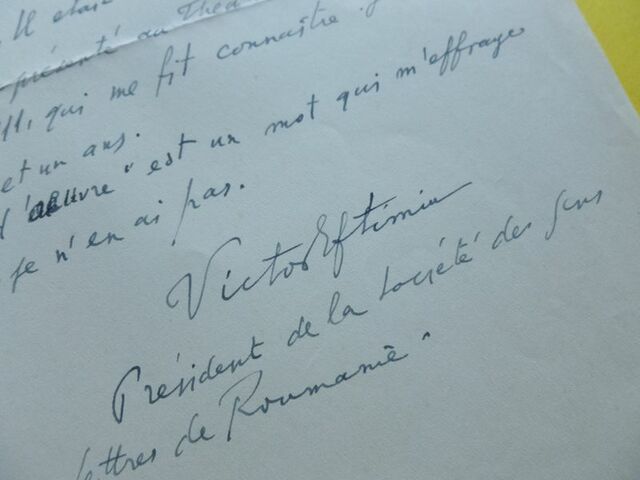 . Il était
présenté au Théa
qui me fit connaître
et un ans.
d'œuvre" est un mot qui m'effraye
je n'en ai pas.
Victor Eftimiu
Président de la Société des Gens
lettres de Roumanie"